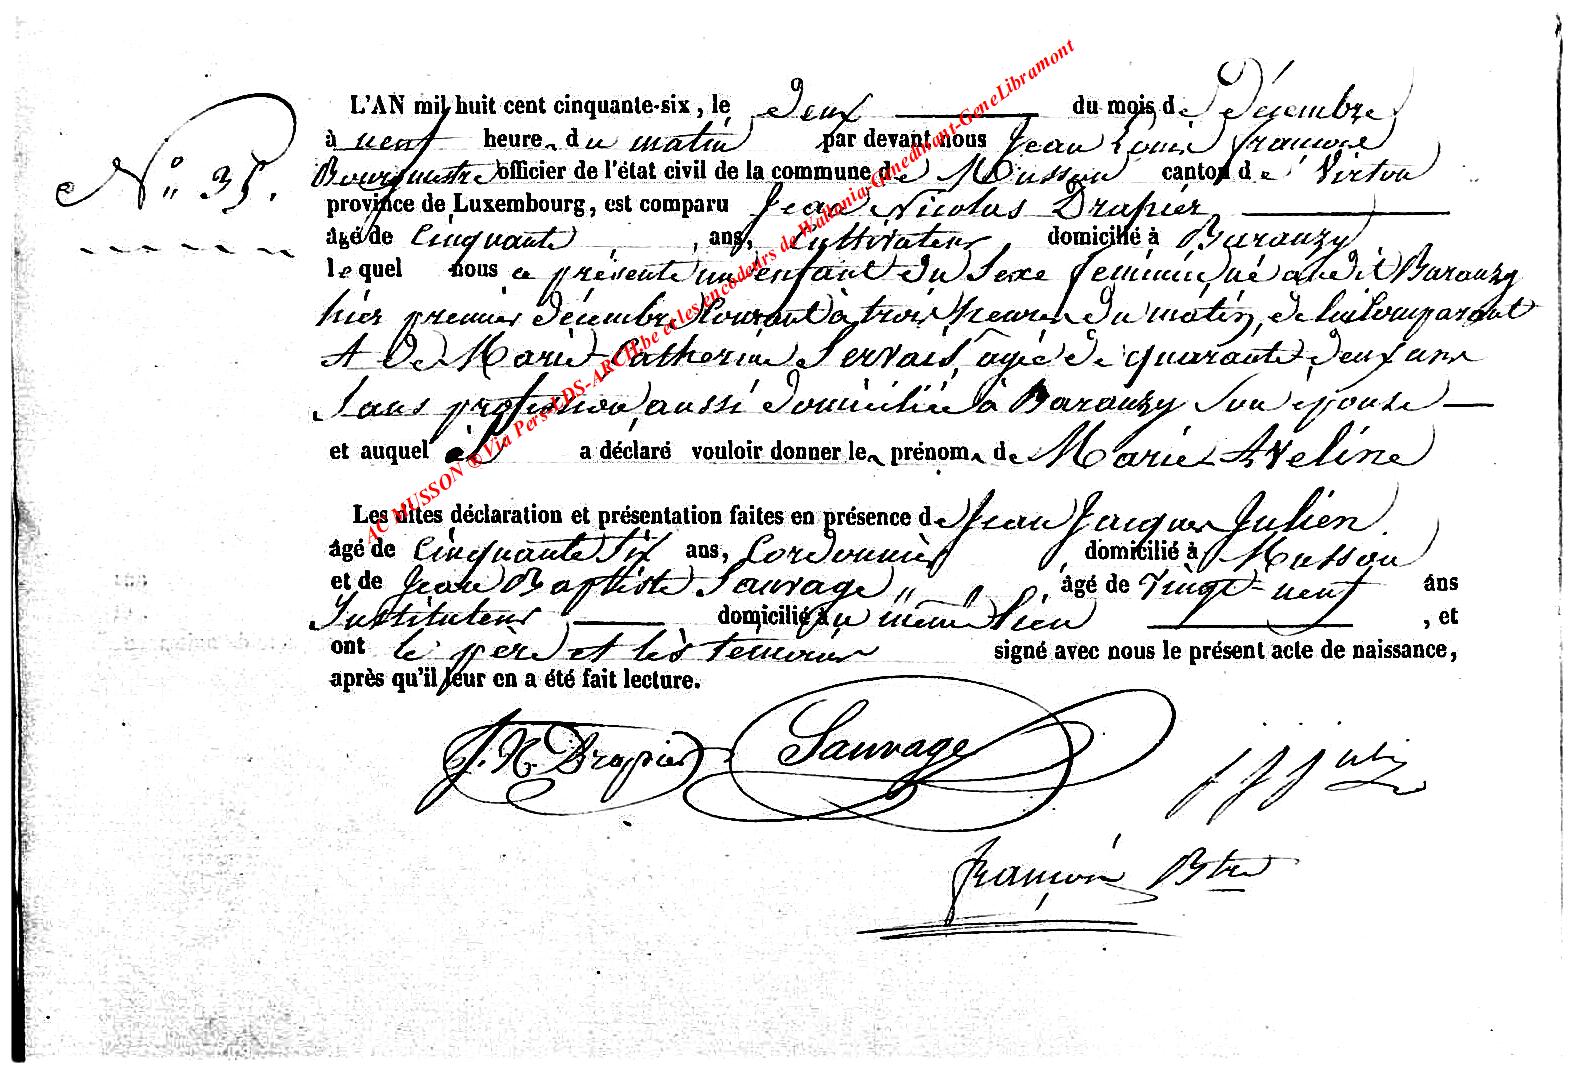 L'AN mil huit cent cinquante-six, le deux du mois de Décembre
à neuf heures du matin par devant nous Jean Louis François
N° 35.
Bourgmestre officier de l'état civil de la commune de Musson canton de Virton
province de Luxembourg, est comparu Jean Nicolas Drapier,
âgé de Cinquante ans, Cultivateur domicilié à Baranzy
lequel nous a présenté un enfant du Sexe féminin, né au dit Baranzy
hier premier décembre Courant à trois heures du matin, de lui Comparant
et de Marie Catherine Servais, agée de quarante deux ans
Sans profession, aussi domiciliée à Baranzy Son épouse
et auquel il a déclaré vouloir donner les prénoms de Marie Aveline
Les dites déclaration et présentation faites en présence de Jean Jacques Julien
âgé de Cinquante Six ans, Cordonnier domicilié à Musson
et de Jean Baptiste Sauvage âgé de Vingt-neuf ans
Instituteur domicilié au même lieu, et
ont le père et les témoins signé avec nous le présent acte de naissance,
après qu'il leur en a été fait lecture.
J. N. Drapier Sauvage J J Julien
François Btre
AC MUSSON @Via Pers-LDS-ARCH.be et les encodeurs de Wallonia-Genedinant-GeneLibramont